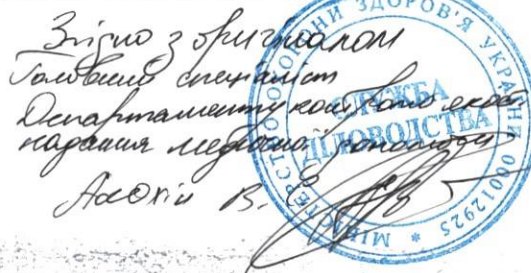 Згідно з оригіналом
Головний спеціаліст
Департаменту контролю якості
надання медичної допомоги
В.
МІНІСТЕРСТВО ОХОРОНИ ЗДОРОВ'Я УКРАЇНИ 00012925 *
СЛУЖБА
ДІЛОВОДСТВА